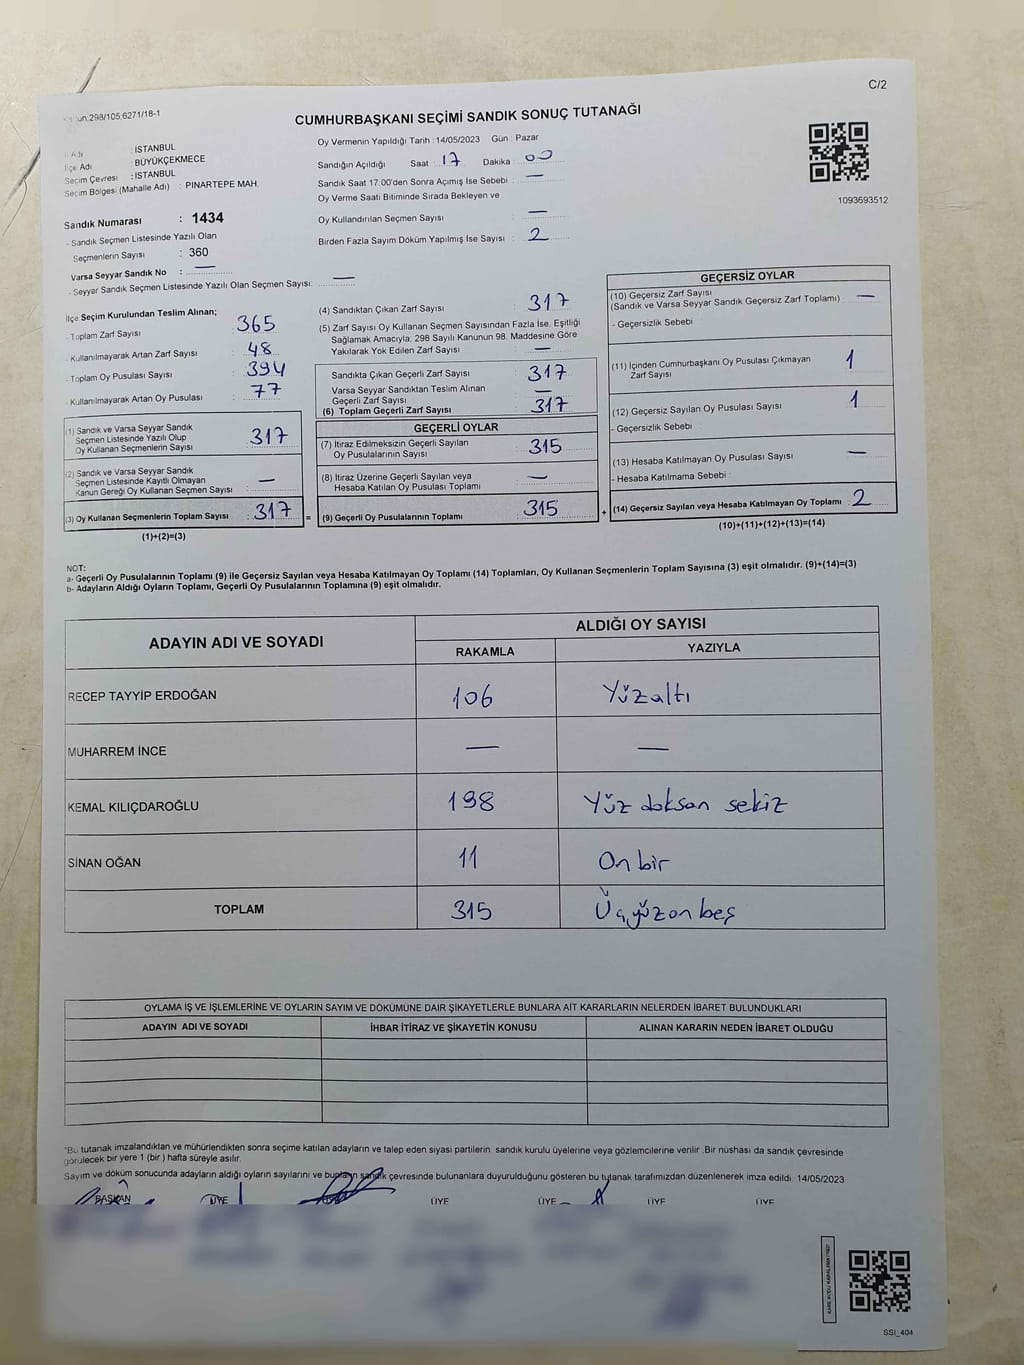 C/2
un.298/105;6271/18-1
CUMHURBAŞKANI SEÇİMİ SANDIK SONUÇ TUTANAĞI
İl Adı : İSTANBUL
İlçe Adı : BÜYÜKÇEKMECE
Seçim Çevresi : İSTANBUL
Seçim Bölgesi (Mahalle Adı) : PINARTEPE MAH.
Oy Vermenin Yapıldığı Tarih : 14/05/2023 Gün : Pazar
Sandığın Açıldığı Saat : 17 Dakika : 00
Sandık Saat 17:00'den Sonra Açımış İse Sebebi : —
Oy Verme Saati Bitiminde Sırada Bekleyen ve
Oy Kullandırılan Seçmen Sayısı : —
Birden Fazla Sayım Döküm Yapılmış İse Sayısı : 2
1093693512
Sandık Numarası : 1434
- Sandık Seçmen Listesinde Yazılı Olan
Seçmenlerin Sayısı : 360
Varsa Seyyar Sandık No : —
- Seyyar Sandık Seçmen Listesinde Yazılı Olan Seçmen Sayısı: —
İlçe Seçim Kurulundan Teslim Alınan;
- Toplam Zarf Sayısı : 365
- Kullanılmayarak Artan Zarf Sayısı : 48
- Toplam Oy Pusulası Sayısı : 394
- Kullanılmayarak Artan Oy Pusulası : 77
(1) Sandık ve Varsa Seyyar Sandık
Seçmen Listesinde Yazılı Olup
Oy Kullanan Seçmenlerin Sayısı : 317
(2) Sandık ve Varsa Seyyar Sandık
Seçmen Listesinde Kayıtlı Olmayan
Kanun Gereği Oy Kullanan Seçmen Sayısı : —
(3) Oy Kullanan Seçmenlerin Toplam Sayısı : 317
(1)+(2)=(3)
(4) Sandıktan Çıkan Zarf Sayısı : 317
(5) Zarf Sayısı Oy Kullanan Seçmen Sayısından Fazla İse, Eşitliği
Sağlamak Amacıyla; 298 Sayılı Kanunun 98. Maddesine Göre
Yakılarak Yok Edilen Zarf Sayısı : —
Sandıkta Çıkan Geçerli Zarf Sayısı : 317
Varsa Seyyar Sandıktan Teslim Alınan
Geçerli Zarf Sayısı : —
(6) Toplam Geçerli Zarf Sayısı : 317
GEÇERLİ OYLAR
(7) İtiraz Edilmeksizin Geçerli Sayılan
Oy Pusulalarının Sayısı : 315
(8) İtiraz Üzerine Geçerli Sayılan veya
Hesaba Katılan Oy Pusulası Toplamı : —
= (9) Geçerli Oy Pusulalarının Toplamı : 315
GEÇERSİZ OYLAR
(10) Geçersiz Zarf Sayısı
(Sandık ve Varsa Seyyar Sandık Geçersiz Zarf Toplamı) : —
- Geçersizlik Sebebi :
(11) İçinden Cumhurbaşkanı Oy Pusulası Çıkmayan
Zarf Sayısı : 1
(12) Geçersiz Sayılan Oy Pusulası Sayısı : 1
- Geçersizlik Sebebi :
(13) Hesaba Katılmayan Oy Pusulası Sayısı : —
- Hesaba Katılmama Sebebi :
+ (14) Geçersiz Sayılan veya Hesaba Katılmayan Oy Toplamı : 2
(10)+(11)+(12)+(13)=(14)
NOT:
a- Geçerli Oy Pusulalarının Toplamı (9) ile Geçersiz Sayılan veya Hesaba Katılmayan Oy Toplamı (14) Toplamları, Oy Kullanan Seçmenlerin Toplam Sayısına (3) eşit olmalıdır. (9)+(14)=(3)
b- Adayların Aldığı Oyların Toplamı, Geçerli Oy Pusulalarının Toplamına (9) eşit olmalıdır.
ADAYIN ADI VE SOYADI
ALDIĞI OY SAYISI
RAKAMLA YAZIYLA
RECEP TAYYİP ERDOĞAN 106 Yüzaltı
MUHARREM İNCE — —
KEMAL KILIÇDAROĞLU 198 Yüz doksan sekiz
SİNAN OĞAN 11 On bir
TOPLAM 315 Üçyüzonbeş
OYLAMA İŞ VE İŞLEMLERİNE VE OYLARIN SAYIM VE DÖKÜMÜNE DAİR ŞİKAYETLERLE BUNLARA AİT KARARLARIN NELERDEN İBARET BULUNDUKLARI
ADAYIN ADI VE SOYADI İHBAR İTİRAZ VE ŞİKAYETİN KONUSU ALINAN KARARIN NEDEN İBARET OLDUĞU
*Bu tutanak imzalandıktan ve mühürlendikten sonra seçime katılan adayların ve talep eden siyasi partilerin sandık kurulu üyelerine veya gözlemcilerine verilir .Bir nüshası da sandık çevresinde
görülecek bir yere 1 (bir ) hafta süreyle asılır.
Sayım ve döküm sonucunda adayların aldığı oyların sayılarını ve bunların sandık çevresinde bulunanlara duyurulduğunu gösteren bu tutanak tarafımızdan düzenlenerek imza edildi. 14/05/2023
BAŞKAN ÜYE ÜYE ÜYE ÜYE ÜYE
SSI_404